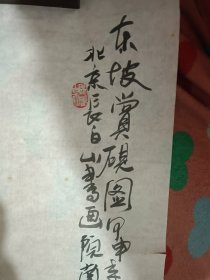 东坡赏砚图甲申
北京长白山书画院南